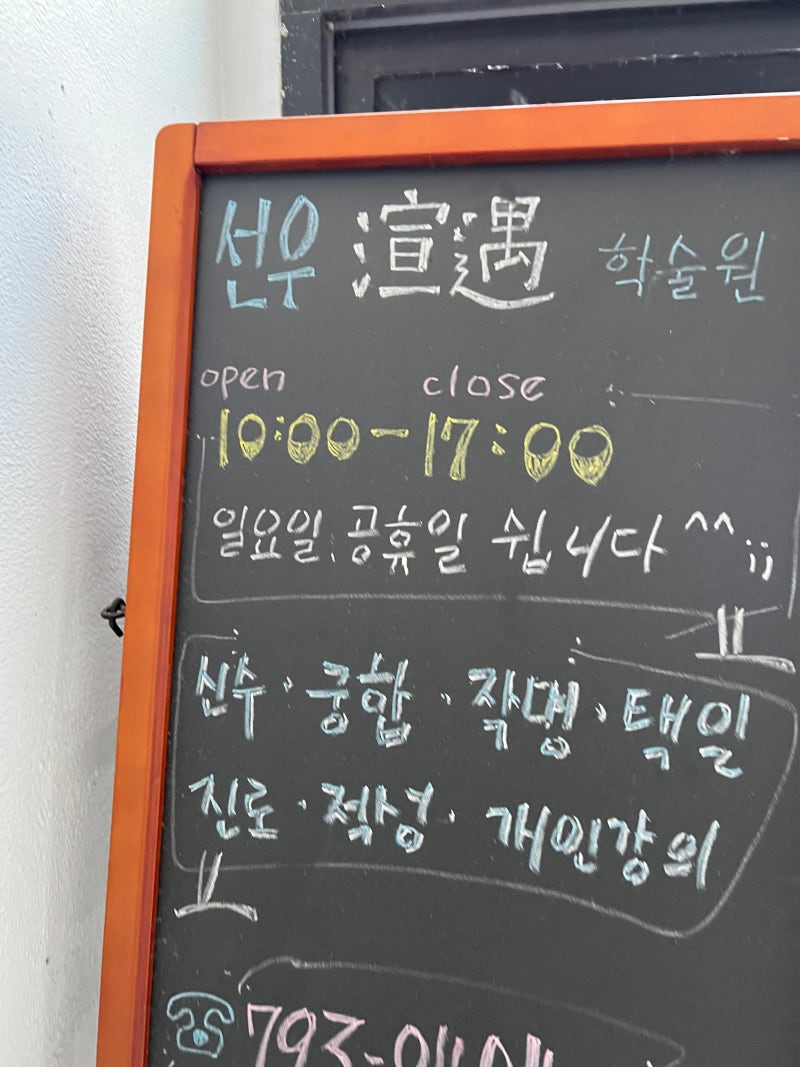 선우 渲遇 학술원
open close
10:00-17:00
일요일. 공휴일 쉽니다 ^^;;
신수·궁합·작명·택일
진로·적성·개인강의
☎793-